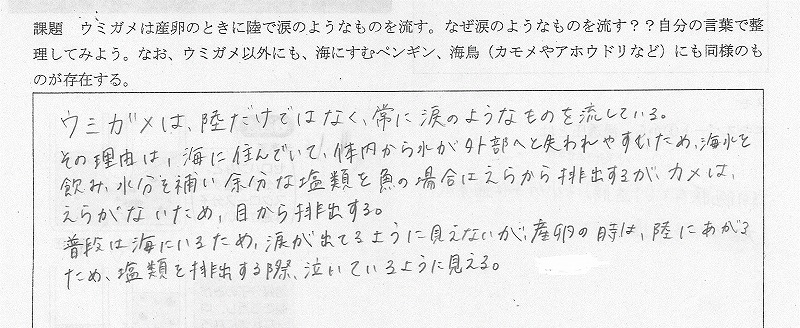 課題　ウミガメは産卵のときに陸で涙のようなものを流す。なぜ涙のようなものを流す？？自分の言葉で整
理してみよう。なお、ウミガメ以外にも、海にすむペンギン、海鳥（カモメやアホウドリなど）にも同様のも
のが存在する。
ウミガメは、陸だけではなく、常に涙のようなものを流している。
その理由は、海に住んでいて、体内から水が外部へと失われやすいため、海水を
飲み、水分を補い余分な塩類を魚の場合はえらから排出するが、カメは、
えらがないため、目から排出する。
普段は海にいるため、涙が出てるように見えないが、産卵の時は、陸にあがる
ため、塩類を排出する際、泣いているように見える。